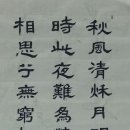 秋風清秌月明
時此夜難為情
相思兮無窮